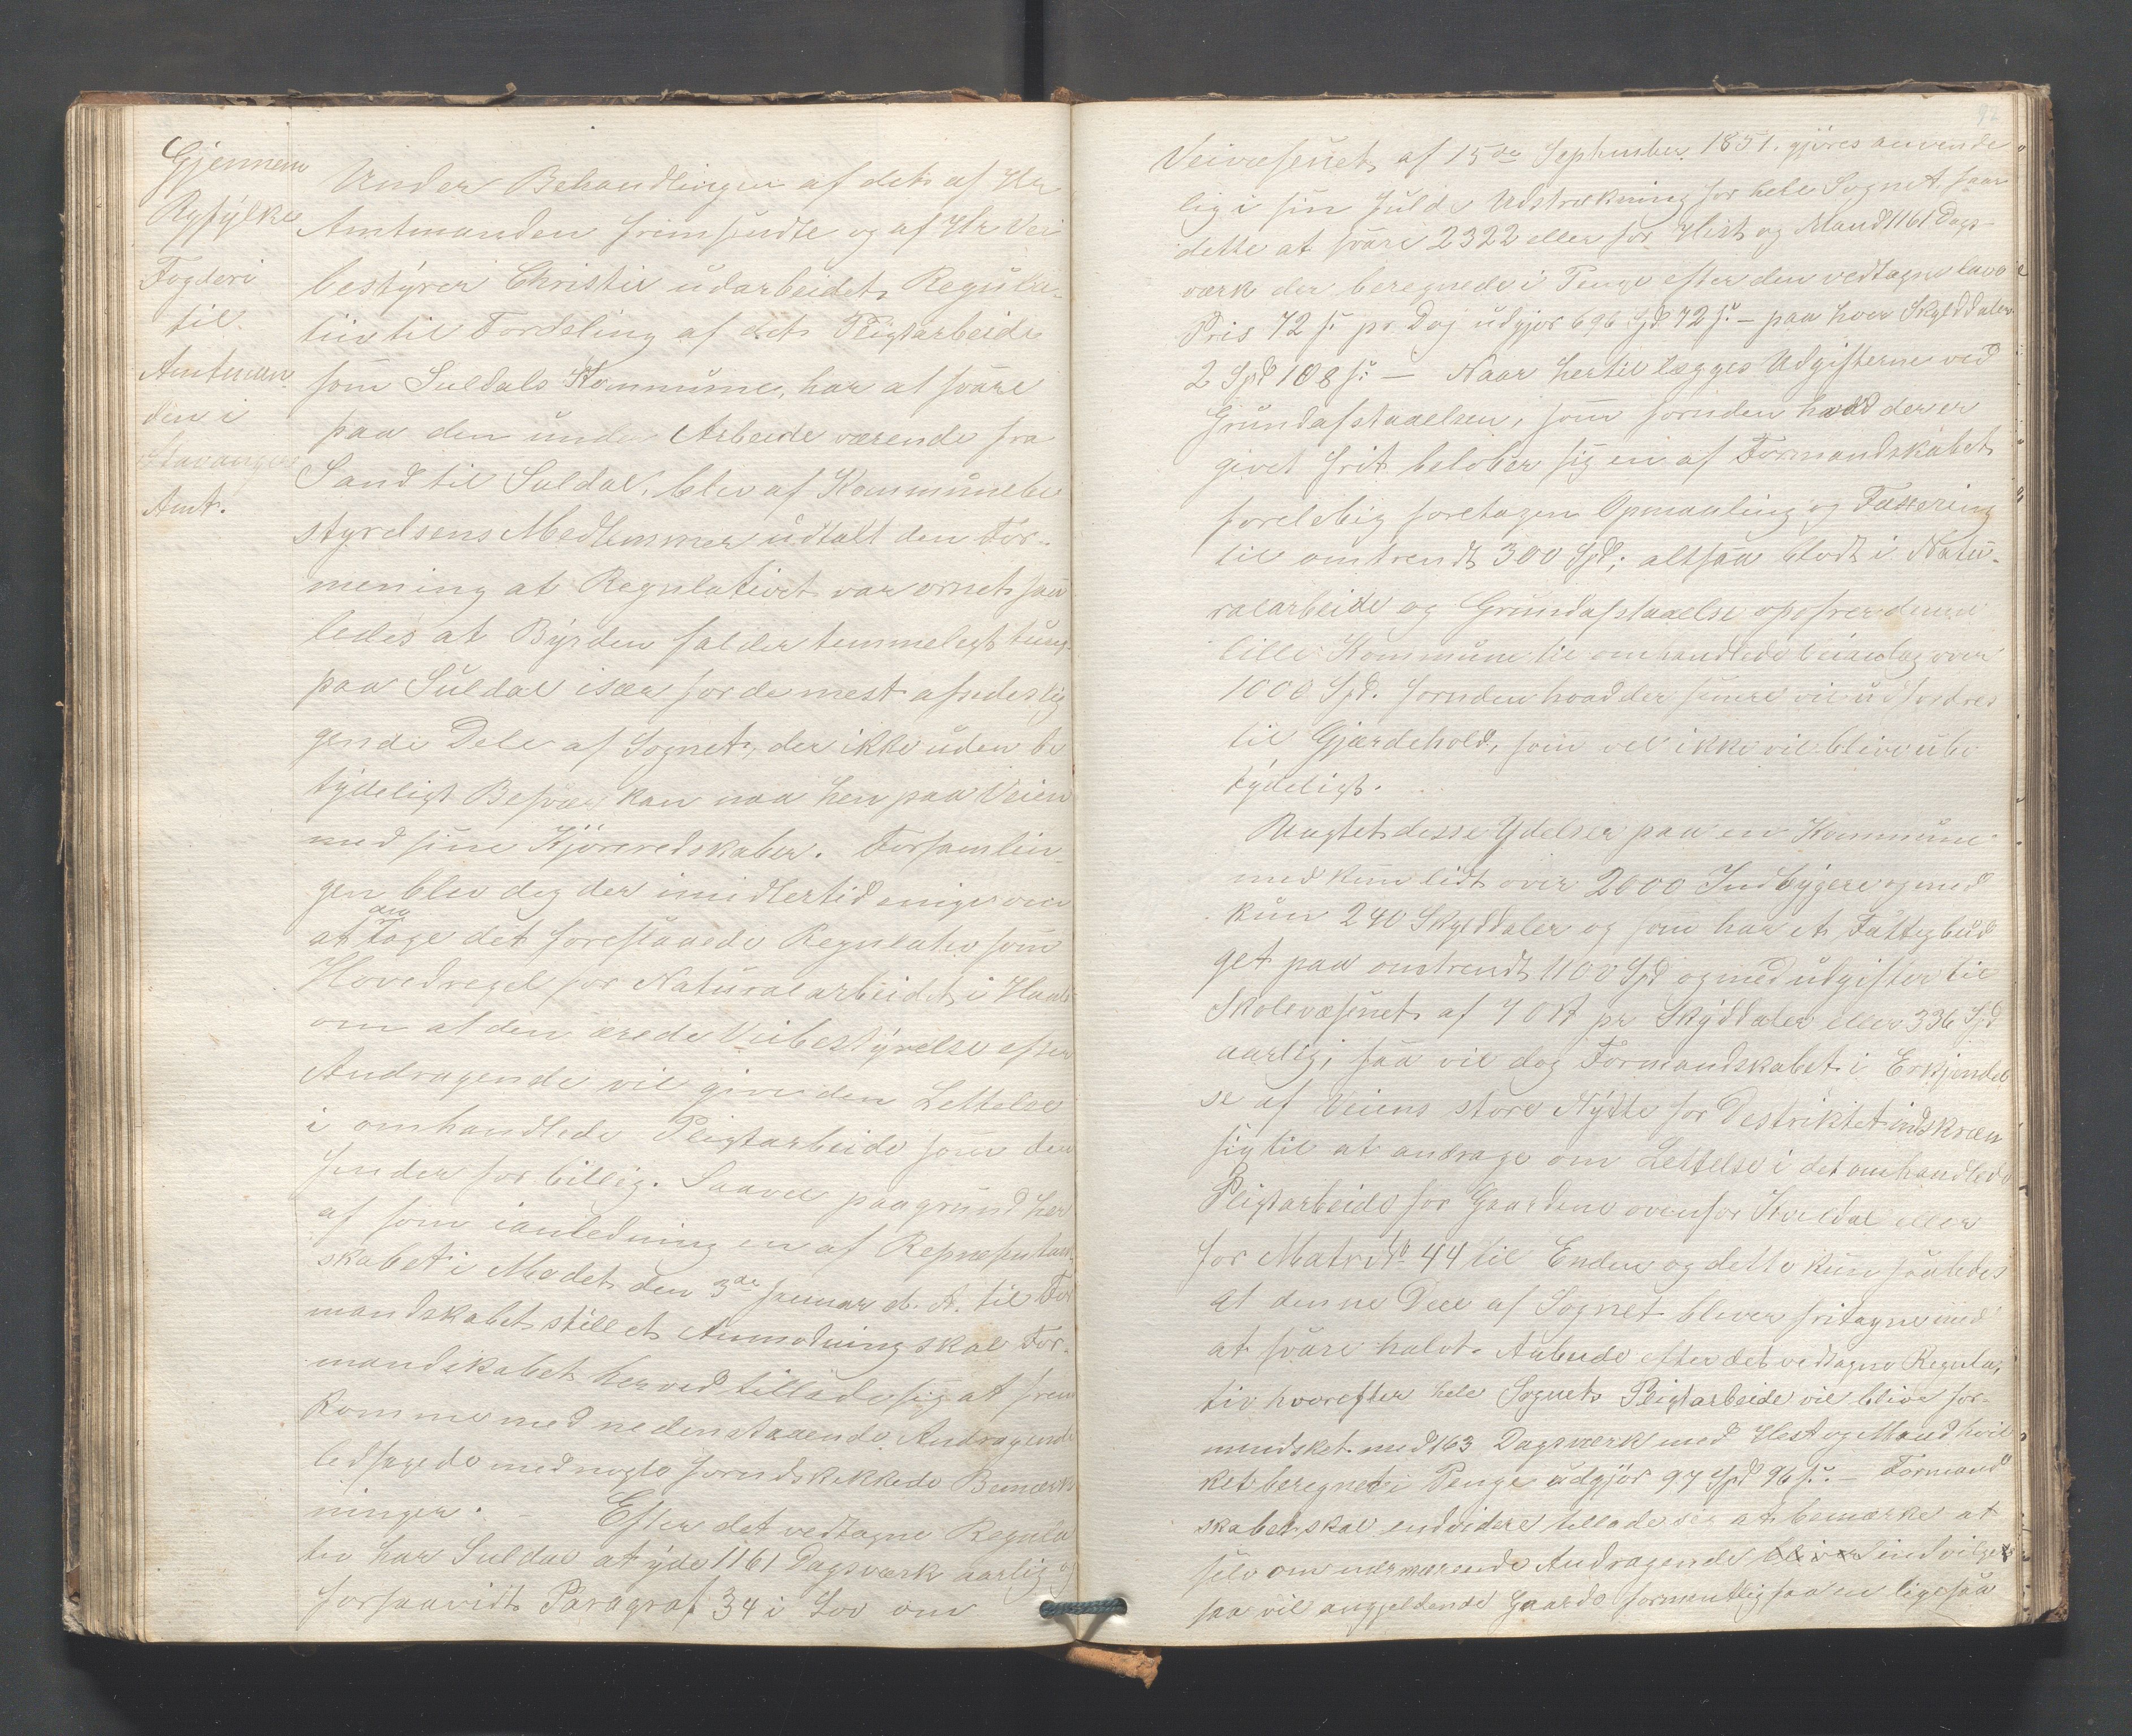 Gjennem
Ryfylke
Fogderi
til
Amtman-
den i
Stavanger
Amt.
Under Behandlingen af det af Hr
Amtmanden fremsendte og af Hr Vei
bestyrer Christie udarbeidet Regula-
tiv til Fordeling af det Pligtarbeide
som Suldals Kommune, har at svare
paa den under Arbeide værende fra
Sand til Suldal, blev af Kommunebe
styrelsens Medlemmer udtalt den For-
mening at Regulativet var ornet saa
ledes at Byrden falder temmeligt tung
paa Suldal især for de mest afsideslig
gende Dele af Sognet, der ikke uden be
tydeligt Besvær kan naa hen paa Veien
med sine Kjøreredskaber. Forsamlin-
gen blev dog der imidlertid enige om
at tage det foreslaaede Regulativ som
Hovedregel for Naturalarbeidet i Haab
om at den ærede Veibestyrelse efter
Andragende vil give den Lettelse
i omhandlede Pligtarbeide som den
finder for billig. Saavel paagrund her
af som ianledning en af Repræsentan
skabet i Mødet den 3de Januar d. A. til For
mandskabet stillet Anmodning skal For-
mandskabet herved tillade sig at frem
komme med nedenstaaende Andragende
ledsagede med nogle forudskikkede Bemærk
ninger. - Efter det vedtagne Regula
tiv har Suldal at yde 1161 Dagsværk aarlig og
forsaavidt Paragraf 34 i Lov om
Veivæsenet af 15de September 1851. gjøres anvende
lig i sin fulde Udstrækning for hele Sognet faar
dette at svare 2322 eller for Hest og Mand 1161 Dags-
værk der beregnede i Penge efter den vedtagne lave
Pris 72 s. pr Dag udgjør 696 Spd 72 s. - paa hver Skylddaler
2 Spd 108 s. - Naar hertil lægges Udgifterne ved
Grundafstaaelsen, som foruden hvad der er
givet frit beløber sig en af Formandskabet
foreløbig foretagen Opmaaling og Taxering
til omtrendt 300 Spd; altsaa blodt i Natu-
ralarbeide og Grundafstaaelse opofrer denne
lille Kommune til omhandlede Veianlæg over
1000 Spd. foruden hvad der senere vil udfordres
til Gjærdehold, som vel ikke vil blive ube
tydeligt.
Uagtet disse Ydelser paa en Kommune
med kun lidt over 2000 Indbygere og med
kun 240 Skylddaler og som har et Fattigbud
get paa omtrendt 1100 Spd og med udgifter til
Skolevæsenet af 7 Ort pr Skylddaler eller 336 Spd
aarlig, saa vil dog Formandskabet i Erkjendel
se af Veiens store Nytte for Destriktet indskræn
sig til at andrage om Lettelse i det omhandlede
Pligtarbeide for Gaardene ovenfor Suldal eller
for Matr No 44 til Enden og dette kun saaledes
at denne Deel af Sognet bliver fritagne med
at svare halvt Arbeide efter det vedtagne Regula-
tiv hvorefter hele Sognets Pligtarbeide vil blive for-
mindsket med 163 Dagsværk med Hest og Mand hvil
ket beregnet i Penge udgjør 97 Spd 96 s. - Formand
skabet skal endvidere tillade sig at bemærke at
selv om nærværende Andragende bliver indvilget
saa vil angjeldende Gaarde formentlig faa en ligesaa